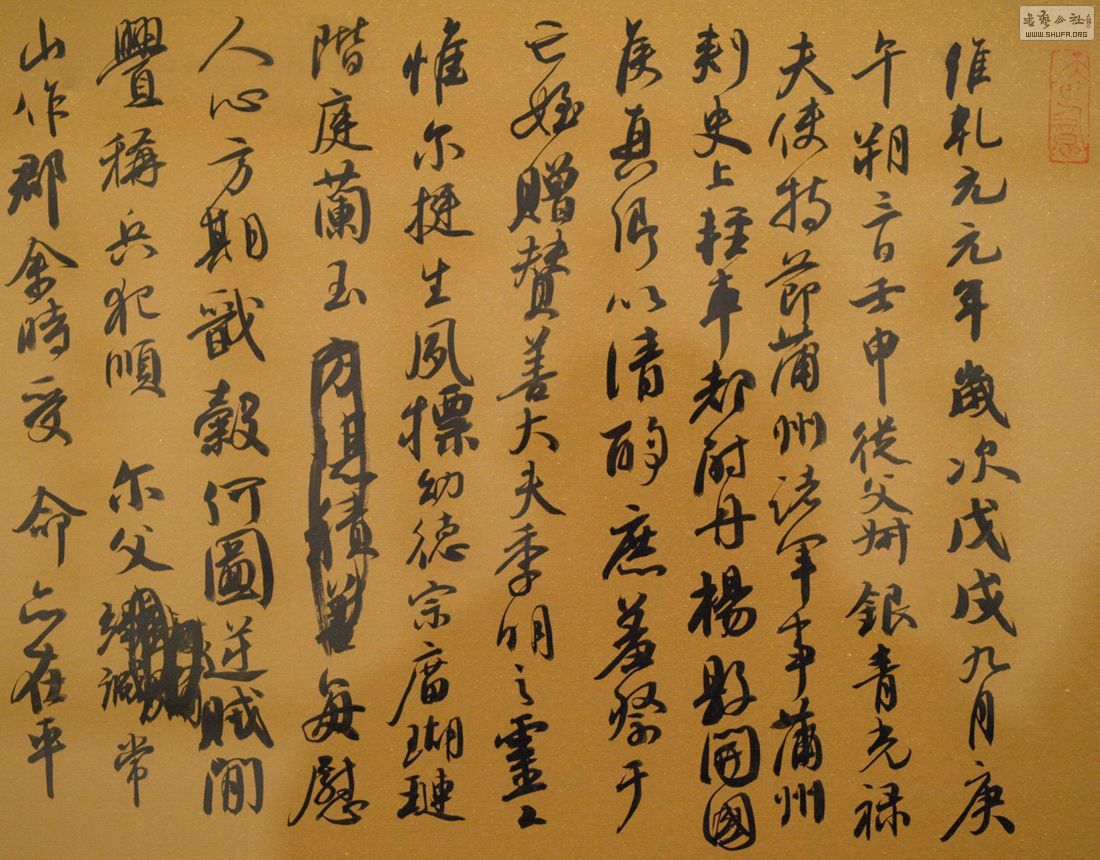 維乾元元年歲次戊戌九月庚
午朔三日壬申從父叔銀青光祿
夫使持節蒲州諸軍事蒲州
刺史上輕車都尉丹楊縣開國
侯真卿以清酌庶羞祭于
亡姪贈贊善大夫季明之靈曰
惟爾挺生夙標幼德宗廟瑚璉
階庭蘭玉方憑積善每慰
人心方期戩穀何圖逆賊閒
釁稱兵犯順 爾父竭誠常
山作郡余時受 命亦在平
WWW.SHUFA.ORG